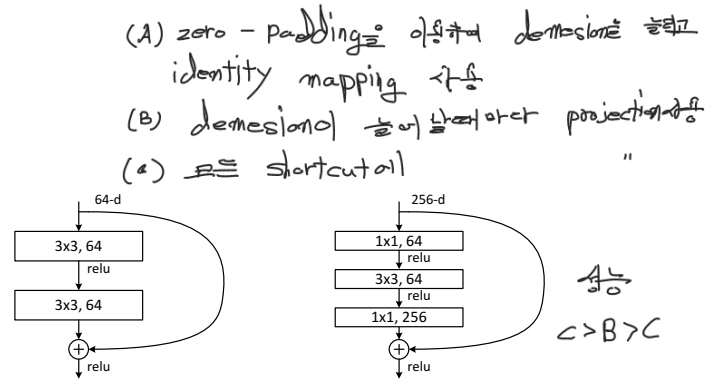 (A) zero - padding을 이용하여 demesion을 늘리고
identity mapping 사용
(B) demesion이 늘어날때마다 projection사용
(C) 모든 shortcut에 "
64-d
3x3, 64
relu
3x3, 64
relu
256-d
1x1, 64
relu
3x3, 64
relu
1x1, 256
relu
성능
C>B>C